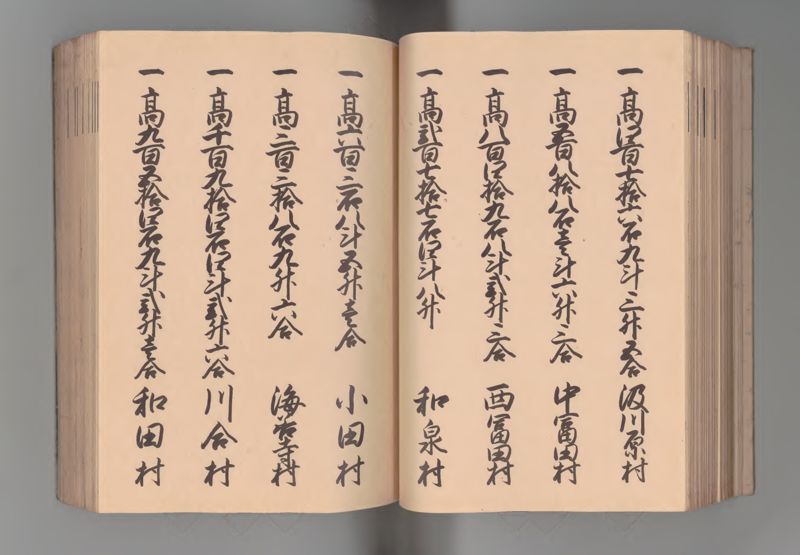 一 高四百七拾六石九斗三升五合 汲川原村
一 高五百八拾八石壱斗六升三合 中冨田村
一 高八百四拾九石八斗弐升三合 西冨田村
一 高弐百七拾七石四斗八升 和泉村
一 高六百三石八斗五升壱合 小田村
一 高三百三拾八石九升六合 海善寺村
一 高千百九拾四石四斗弐升六合 川合村
一 高九百五拾四石九斗弐升壱合 和田村